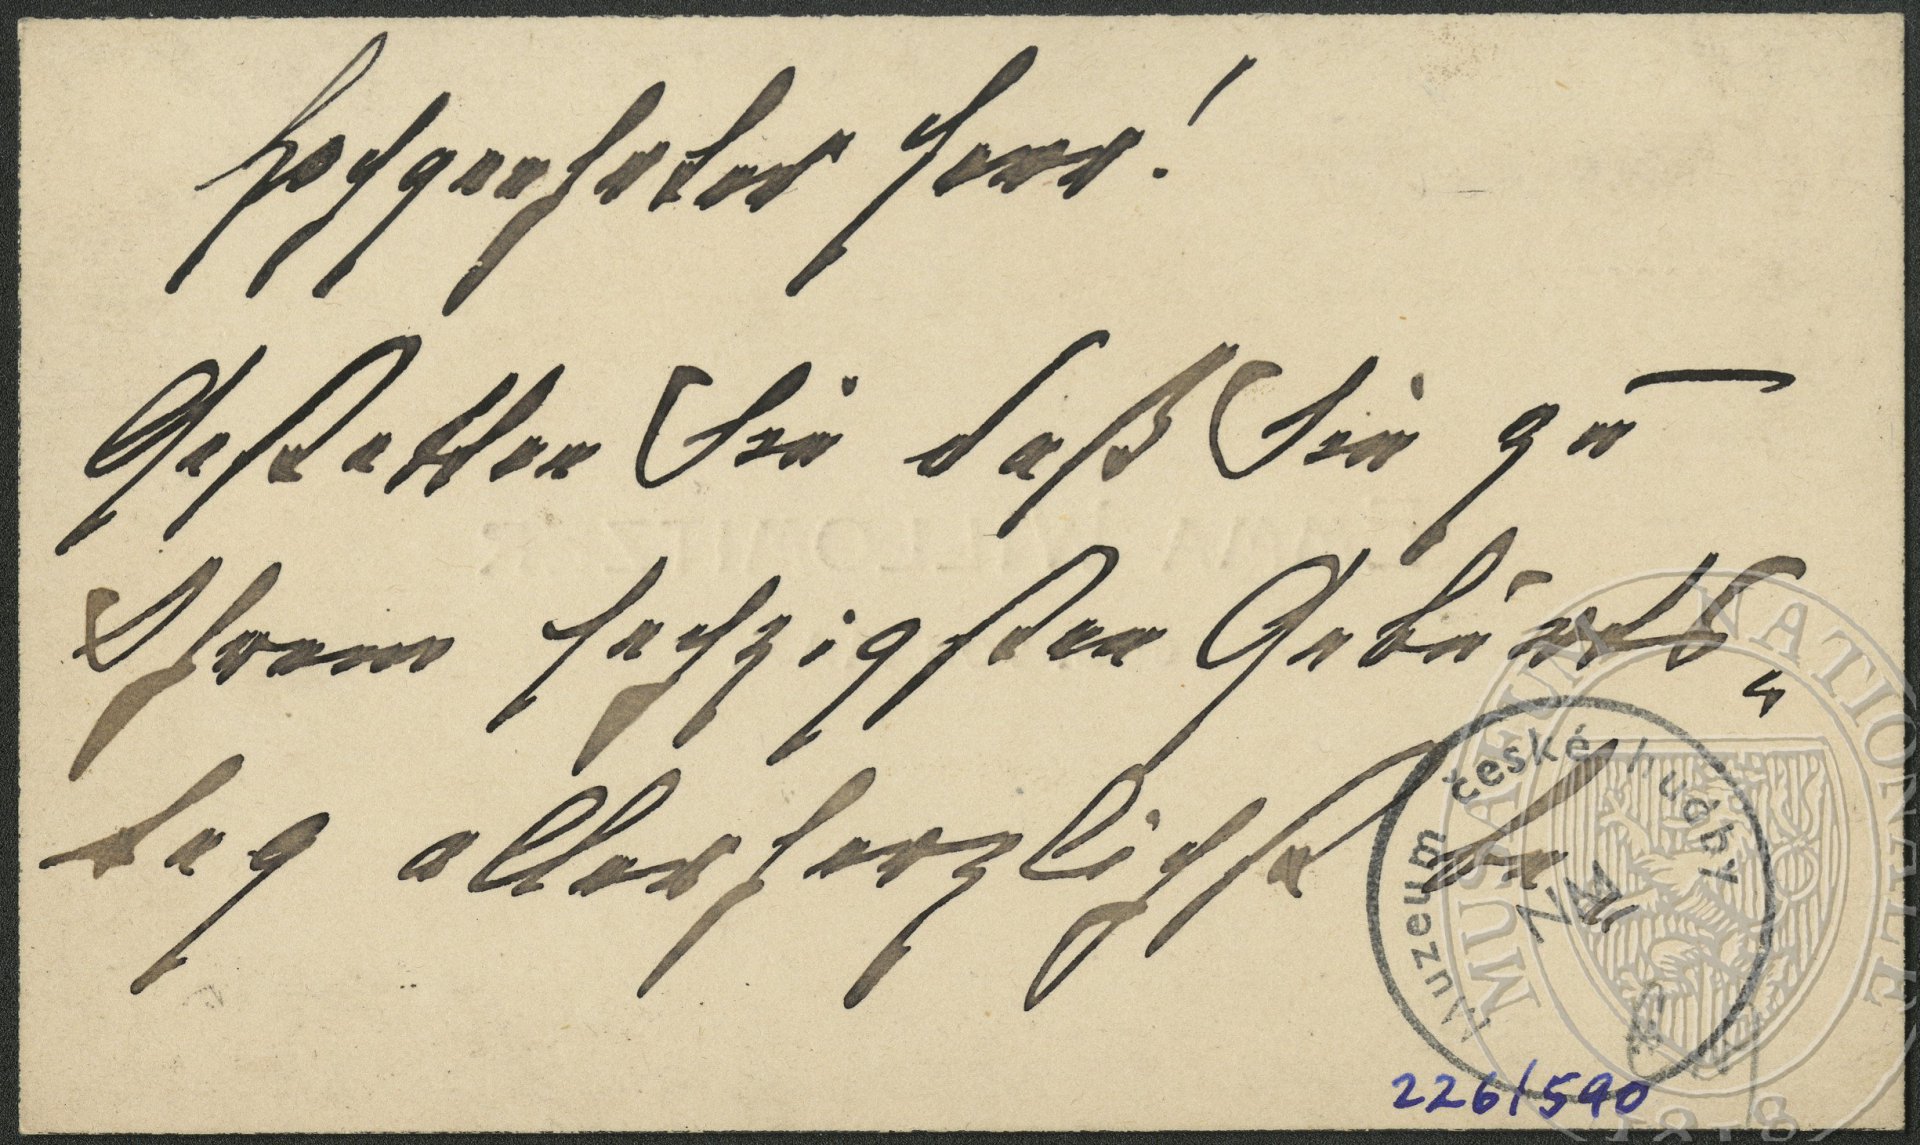 Hochgeehrter Herr!
Gestatten Sie daß Sie zu
Ihrem sechzigsten Geburts„
tag allerherzlichst be
Muzeum české hudby
MUSAEUM NATIONALE
1818
226/590